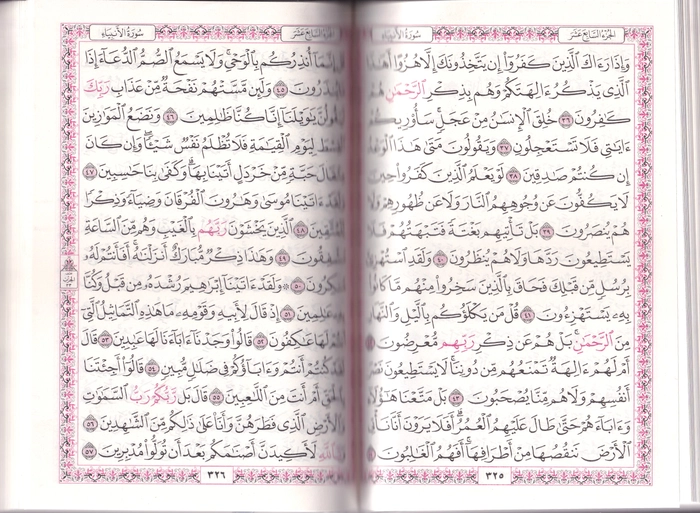 الجزء السابع عشر
سورة الأنبياء
وَإِذَا رَءَاكَ ٱلَّذِينَ كَفَرُوٓاْ إِن يَتَّخِذُونَكَ إِلَّا هُزُوًا أَهَٰذَا
ٱلَّذِى يَذْكُرُ ءَالِهَتَكُمْ وَهُم بِذِكْرِ ٱلرَّحْمَٰنِ هُمْ
كَٰفِرُونَ ٣٦ خُلِقَ ٱلْإِنسَٰنُ مِنْ عَجَلٍ سَأُوْرِيكُمْ
ءَايَٰتِى فَلَا تَسْتَعْجِلُونِ ٣٧ وَيَقُولُونَ مَتَىٰ هَٰذَا ٱلْوَعْدُ
إِن كُنتُمْ صَٰدِقِينَ ٣٨ لَوْ يَعْلَمُ ٱلَّذِينَ كَفَرُواْ حِينَ
لَا يَكُفُّونَ عَن وُجُوهِهِمُ ٱلنَّارَ وَلَا عَن ظُهُورِهِمْ وَلَا
هُمْ يُنصَرُونَ ٣٩ بَلْ تَأْتِيهِم بَغْتَةً فَتَبْهَتُهُمْ فَلَا
يَسْتَطِيعُونَ رَدَّهَا وَلَا هُمْ يُنظَرُونَ ٤٠ وَلَقَدِ ٱسْتُهْزِئَ
بِرُسُلٍ مِّن قَبْلِكَ فَحَاقَ بِٱلَّذِينَ سَخِرُواْ مِنْهُم مَّا كَانُواْ
بِهِۦ يَسْتَهْزِءُونَ ٤١ قُلْ مَن يَكْلَؤُكُم بِٱلَّيْلِ وَٱلنَّهَارِ
مِنَ ٱلرَّحْمَٰنِ بَلْ هُمْ عَن ذِكْرِ رَبِّهِم مُّعْرِضُونَ
أَمْ لَهُمْ ءَالِهَةٌ تَمْنَعُهُم مِّن دُونِنَا لَا يَسْتَطِيعُونَ نَصْرَ
أَنفُسِهِمْ وَلَا هُم مِّنَّا يُصْحَبُونَ ٤٣ بَلْ مَتَّعْنَا هَٰٓؤُلَآءِ
وَءَابَآءَهُمْ حَتَّىٰ طَالَ عَلَيْهِمُ ٱلْعُمُرُ أَفَلَا يَرَوْنَ أَنَّا نَأْتِى
ٱلْأَرْضَ نَنقُصُهَا مِنْ أَطْرَافِهَآ أَفَهُمُ ٱلْغَٰلِبُونَ
٣٢٥
الجزء السابع عشر
سورة الأنبياء
قُلْ إِنَّمَآ أُنذِرُكُم بِٱلْوَحْىِ وَلَا يَسْمَعُ ٱلصُّمُّ ٱلدُّعَآءَ إِذَا
يُنذَرُونَ ٤٥ وَلَئِن مَّسَّتْهُمْ نَفْحَةٌ مِّنْ عَذَابِ رَبِّكَ
لَيَقُولُنَّ يَٰوَيْلَنَآ إِنَّا كُنَّا ظَٰلِمِينَ ٤٦ وَنَضَعُ ٱلْمَوَٰزِينَ
ٱلْقِسْطَ لِيَوْمِ ٱلْقِيَٰمَةِ فَلَا تُظْلَمُ نَفْسٌ شَيْـًٔا وَإِن كَانَ
مِثْقَالَ حَبَّةٍ مِّنْ خَرْدَلٍ أَتَيْنَا بِهَا وَكَفَىٰ بِنَا حَٰسِبِينَ ٤٧
وَلَقَدْ ءَاتَيْنَا مُوسَىٰ وَهَٰرُونَ ٱلْفُرْقَانَ وَضِيَآءً وَذِكْرًا
لِّلْمُتَّقِينَ ٤٨ ٱلَّذِينَ يَخْشَوْنَ رَبَّهُم بِٱلْغَيْبِ وَهُم مِّنَ ٱلسَّاعَةِ
مُشْفِقُونَ ٤٩ وَهَٰذَا ذِكْرٌ مُّبَارَكٌ أَنزَلْنَٰهُ أَفَأَنتُمْ لَهُۥ
مُنكِرُونَ ٥٠ وَلَقَدْ ءَاتَيْنَآ إِبْرَٰهِيمَ رُشْدَهُۥ مِن قَبْلُ وَكُنَّا
بِهِۦ عَٰلِمِينَ ٥١ إِذْ قَالَ لِأَبِيهِ وَقَوْمِهِۦ مَا هَٰذِهِ ٱلتَّمَاثِيلُ ٱلَّتِىٓ
أَنتُمْ لَهَا عَٰكِفُونَ ٥٢ قَالُواْ وَجَدْنَآ ءَابَآءَنَا لَهَا عَٰبِدِينَ ٥٣ قَالَ
لَقَدْ كُنتُمْ أَنتُمْ وَءَابَآؤُكُمْ فِى ضَلَٰلٍ مُّبِينٍ ٥٤ قَالُوٓاْ أَجِئْتَنَا
بِٱلْحَقِّ أَمْ أَنتَ مِنَ ٱللَّٰعِبِينَ ٥٥ قَالَ بَل رَّبُّكُمْ رَبُّ ٱلسَّمَٰوَٰتِ
وَٱلْأَرْضِ ٱلَّذِى فَطَرَهُنَّ وَأَنَا۠ عَلَىٰ ذَٰلِكُم مِّنَ ٱلشَّٰهِدِينَ ٥٦
وَتَٱللَّهِ لَأَكِيدَنَّ أَصْنَٰمَكُم بَعْدَ أَن تُوَلُّواْ مُدْبِرِينَ ٥٧
٣٢٦